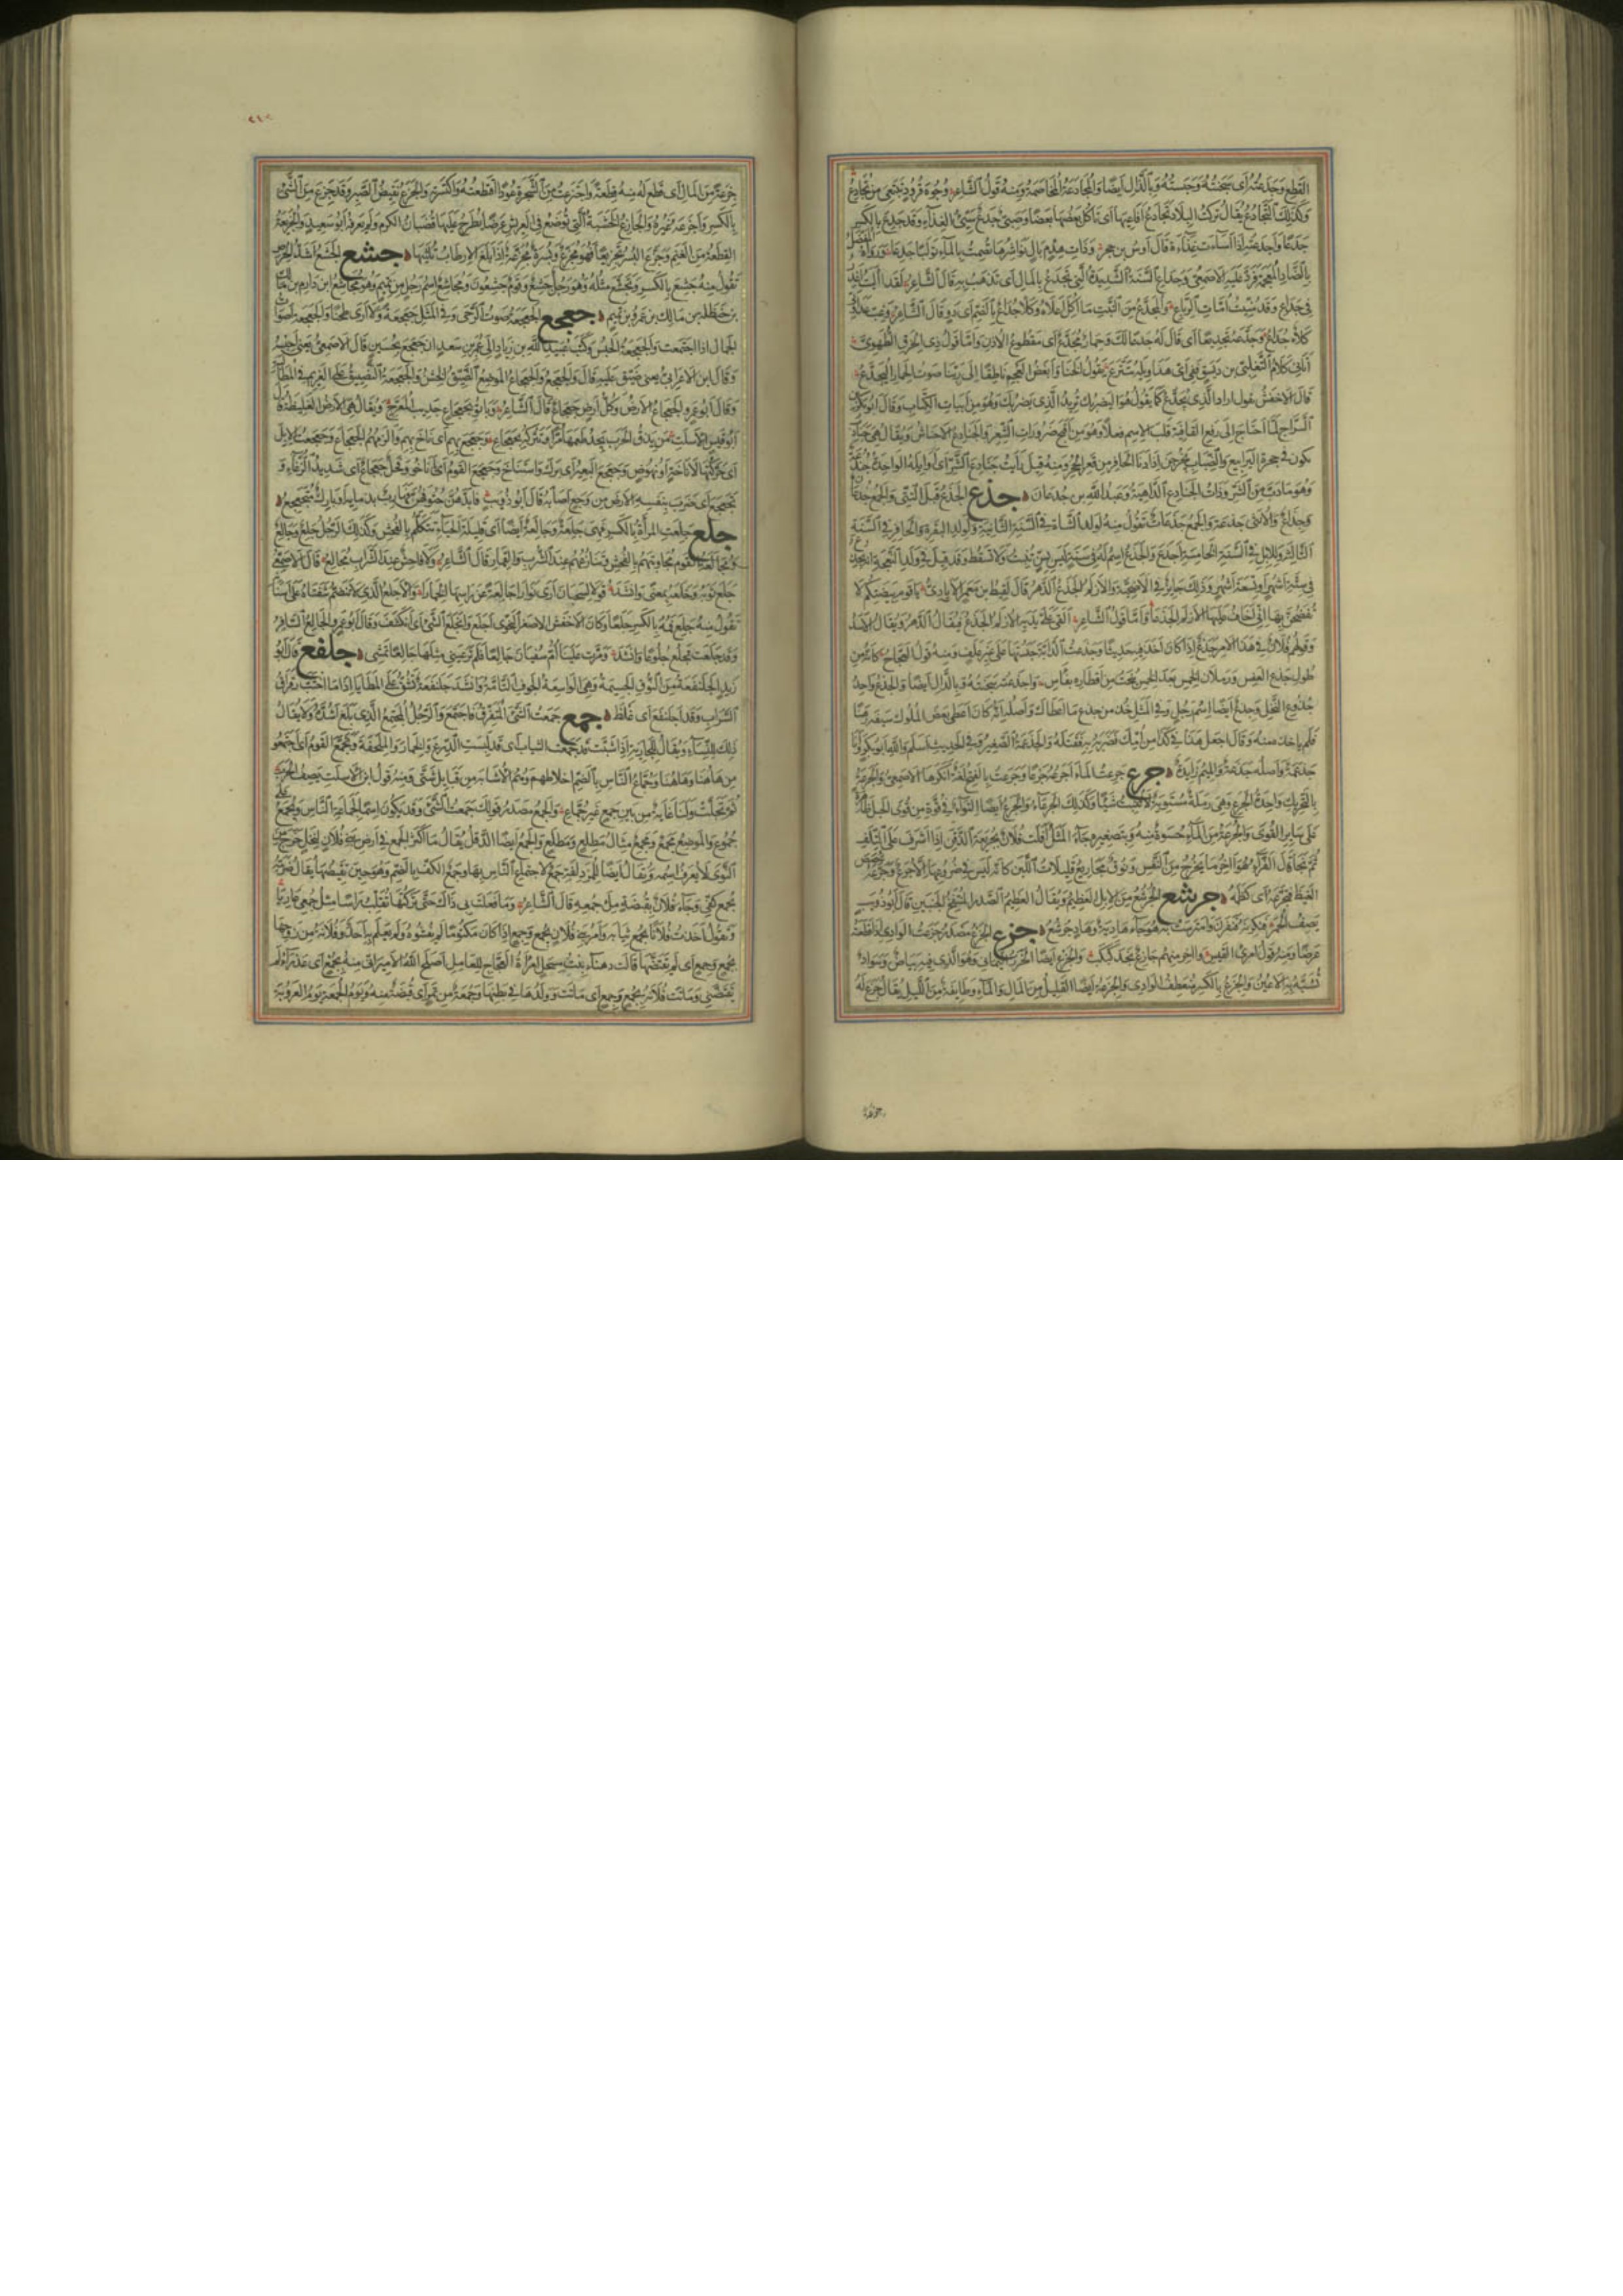 القطع وجدعته أى سجنته وحبسته وبالذال أيضا والمجادعة المخاصمة ومنه قول الشاعر وجوه قرود تبتغى من تجادع
وكذلك التجادع يقال تركت البلاد تجادع أفاعيها أى تأكل بعضها بعضا وصبى جدع سيئ الغذاء وقد جدع بالكسر
جدعا وأجدعته إذا أسأت غذاءه قال أوس بن حجر وذات هدم بال نواشرها تصمت بالماء تولبا جدعا ورواه المفضل
بالذال المعجمة فرد عليه الأصمعى وجداع السنة الشديدة التى تجدع بالمال أى تذهب به قال الشاعر لقد آليت أغدر
فى جداع وقد منيت أمات الرباع والمجدع من النبت ما أكل أعلاه وكلأ جداع بالضم أى دو قال الشاعر وغب عداوتى
كلأ جداع وجدعته تجديعا أى قال له جدعا لك وحمار مجدع أى مقطوع الأذن وأما قول ذى الخرق الطهوى
أتانى كلام الثعلبى بن ديسق ففى أى هذا ويله يتترع يقول الخنا وأبغض العجم ناطقا إلى ربنا صوت الحمار اليجدع
قال الأخفش يقول أراد الذى يجدع كما يقول هو اليضربك تريد الذى يضربك وهو من أبيات الكتاب وقال أبو بكر بن
السراج لما احتاج إلى رفع القافية قلب الاسم فعلا وهو من أقبح ضرورات الشعر والجنادع الأحناش ويقال هى جنادب
تكون فى جحرة اليرابيع والضباب يخرجن إذا دنا الحافر من قعر الجحر ومنه قيل رأيت جنادع الشر أى أوايله الواحدة جندعة
وهو ما دب من الشر وذات الجنادع الداهية وعبد الله بن جدعان جذع الجذع قبل الثنى والجمع جذعان
وجذاع والأنثى جذعة والجمع جذعات تقول منه لولد الشاة فى السنة الثانية ولولد البقرة والحافر فى السنة
الثالثة وللإبل فى السنة الخامسة أجذع والجذع اسم له فى سنة ليس بسن تنبت ولا تسقط وقد قيل فى ولد النعجة إنه يجذع
فى ستة أشهر أو تسعة أشهر وذلك جايز فى الأضحية والأزلم الجذع الدهر قال لقيط بن معمر الإيادى يا قوم بيضتكم لا
تفضحن بها إنى أخاف عليها الأزلم الجذعا وأما قول الشاعر ألقى على يديه الأزلم الجذع فيقال الدهر ويقال الأسد
وقولهم فلان فى هذا الأمر جذع إذا كان أخذ فيه حديثا وجذعت الدابة حبستها على غير علف ومنه قول العجاج كأنه من
طول جذع العفس ورملان الخمس بعد الخمس ينحت من أقطاره بفأس وأجذعته سجنته وبالدال أيضا والجذع واحد
جذوع النخل وجذع أيضا اسم رجل وفى المثل خذ من جذع ما أعطاك وأصله أنه كان أعطى بعض الملوك سيفه رهنا
فلم يأخذه منه وقال اجعل هذا فى كذا من أمك فضربه به فقتله والجذعمة الصغير وفى الحديث أسلم والله أبو بكر وأنا
جذعمة وأصله جذعة والميم زايدة جرع جرعت الماء أجرعه جرعا وجرعت بالفتح لغة أنكرها الأصمعى والجرعة
بالتحريك واحدة الجرع وهى رملة مستوية لا تنبت شيئا وكذلك الجرعاء والجرع أيضا التواء فى قوة من قوى الحبل ظاهرة
على سائر القوى والجرعة من الماء حسوة منه وبتصغيره جاء المثل أفلت فلان بجريعة الذقن إذا أشرف على التلف
ثم نجا قال الفراء هو آخر ما يخرج من النفس ونوق مجاريع قليلات اللبن كأنه ليس فى ضروعها إلا جرع وجرعه غصص
الغيظ فتجرعه أى كظمه جرشع الجرشع من الإبل العظيم ويقال العظيم الصدر المنتفخ الجنبين قال أبو ذؤيب
يصف الحمر فنكرنه فنفرن وامترست به هوجاء هادية وهاد جرشع جزع الجزع مصدر جزعت الوادى إذا قطعته
عرضا ومنه قول امرئ القيس وآخر منهم جازع نجد كبكب والجزع أيضا الخرز اليمانى وهو الذى فيه بياض وسواد
تشبه به الأعين والجزع بالكسر منعطف الوادى والجزعة أيضا القليل من المال والماء وطايفة من الليل يقال جزع له
جزعة من المال أى قطع له منه قطعة واجتزعت من الشجرة عودا اقتطعته واكتسرته والجزع نقيض الصبر وقد جزع من الشئ
بالكسر وأجزعه غيره والجازع الخشبة التى توضع فى العريش عرضا يطرح عليها قضبان الكرم ولم يعرفه أبو سعيد والجزيعة
القطعة من الغنم وجزع البسر تجزيعا فهو مجزع وبسرة مجزعة إذا بلغ الإرطاب ثلثيها جشع الجشع أشد الحرص
تقول منه جشع بالكسر وتجشع مثله وهو رجل جشع وقوم جشعون ومجاشع اسم رجل من تميم وهو مجاشع بن دارم بن مالك
بن حنظلة بن مالك بن عمرو بن تميم جعجع الجعجعة صوت الرحى وفى المثل جعجعة ولا أرى طحنا والجعجعة أصوات
الجمال إذا اجتمعت والجعجعة الحبس وكتب عبيد الله بن زياد إلى عمر بن سعد أن جعجع بحسين قال الأصمعى يعنى احبسه
وقال ابن الأعرابى يعنى ضيق عليه قال والجعجع والجعجاع الموضع الضيق الخشن والجعجعة التضييق على الغريم فى المطالبة
وقال أبو عمرو الجعجاع الأرض وكل أرض جعجاع قال الشاعر وباتوا بجعجاع جديب المعرج ويقال هى الأرض الغليظة قال
أبو قيس بن الأسلت من يذق الحرب يجد طعمها مرا وتتركه بجعجاع وجعجع بهم أى أناخ بهم وألزمهم الجعجاع وجعجعت الإبل
أى حركتها لإناخة أو نهوض وجعجع البعير أى برك واستناخ وجعجع القوم أى أناخوا وفحل جعجاع أى شديد الرغاء و
تجعجع أى ضرب بنفسه الأرض من وجع أصابه قال أبو ذؤيب فأبدهن حتوفهن فهارب بذمائه أو بارك متجعجع
جلع جلعت المرأة بالكسر فهى جلعة وجالعة أيضا أى قليلة الحياء تتكلم بالفحش وكذلك الرجل جلع وجالع
ومجالعة القوم مجاوبتهم بالفحش وتنازعهم عند الشرب والقمار قال الشاعر ولا فاحش عند الشراب مجالع قال الأصمعى
جلع ثوبه وخلعه بمعنى وأنشد قولا لسحبان أرى نوارا جالعة عن رأسها الخمارا والأجلع الذى لا تنضم شفتاه على أسنانه
تقول منه جلع فمه بالكسر جلعا وكان الأخفش الأصغر النحوى أجلع وانجلع الشئ أى انكشف وقال أبو عمرو الجالع السافر
وقد جلعت تجلع جلوعا وأنشد ومرت علينا أم سفيان جالعا فلم تر عينى مثلها جالعا تمشى جلفع قال أبو
زيد الجلنفعة من النوق الجسيمة وهى الواسعة الجوف التامة وأنشد جلنفعة تشق على المطايا إذا ما اختب رقراق
السراب وقد اجلنفع أى غلظ جمع جمعت الشئ المتفرق فاجتمع والرجل المجتمع الذى بلغ أشده ولا يقال
ذلك للنساء ويقال للجارية إذا شبت قد جمعت الثياب أى قد لبست الدرع والخمار والملحفة وتجمع القوم أى اجتمعوا
من هاهنا وهاهنا وجماع الناس بالضم أخلاطهم وهم الأشابة من قبايل شتى ومنه قول ابن الأسلت يصف الحرب
ثم تجلت ولنا غاية من بين جمع غير جماع والجمع مصدر قولك جمعت الشئ وقد يكون اسما لجماعة الناس ويجمع على
جموع والموضع مجمع ومجمع مثال مطلع ومطلع والجمع أيضا الدقل يقال ما أكثر الجمع فى أرض بنى فلان لنخل خرج من
النوى لا يعرف اسمه ويقال أيضا للمزدلفة جمع لاجتماع الناس بها وجمع الكف بالضم وهو حين تقبضها يقال ضربته
بجمع كفى وجاء فلان بقبضة ملء جمعه قال الشاعر وما فعلت بى ذاك حتى تركتها تقلب رأسا مثل جمعى عاريا
وتقول أخذت فلانا بجمع ثيابه وأمر بنى فلان بجمع وجمع إذا كان مكتوما لم يفشوه ولم يعلم به أحد وفلانة من زوجها
بجمع وجمع أى لم يقتضها قالت دهناء بنت مسحل امرأة العجاج للعامل أصلح الله الأمير إنى منه بجمع أى عذراء لم
يقتضنى وماتت فلانة بجمع وجمع أى ماتت وولدها فى بطنها وجمعة من تمر أى قبضة منه ويوم الجمعة يوم العروبة